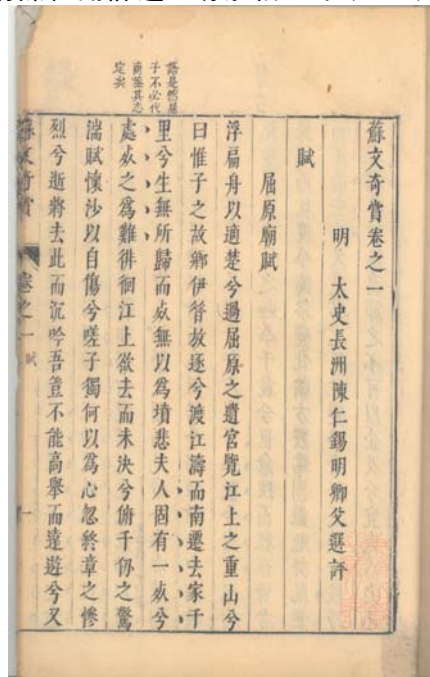 蘇文奇賞卷之一
明 太史長洲陳仁錫明卿父選評
賦
屈原廟賦
浮扁舟以適楚兮過屈原之遺宮覽江上之重山兮
曰惟子之故鄉伊昔放逐兮渡江濤而南遷去家千
里兮生無所歸而死無以爲墳悲夫人固有一死兮
處死之爲難徘徊江上欲去而未決兮俯千仞之驚
湍賦懷沙以自傷兮嗟子獨何以爲心忽終章之慘
烈兮逝將去此而沉吟吾豈不能高舉而遠遊兮又
語是然屈
子不必代
商葢其志
定矣
蘇文奇賞 卷之一 賦 一